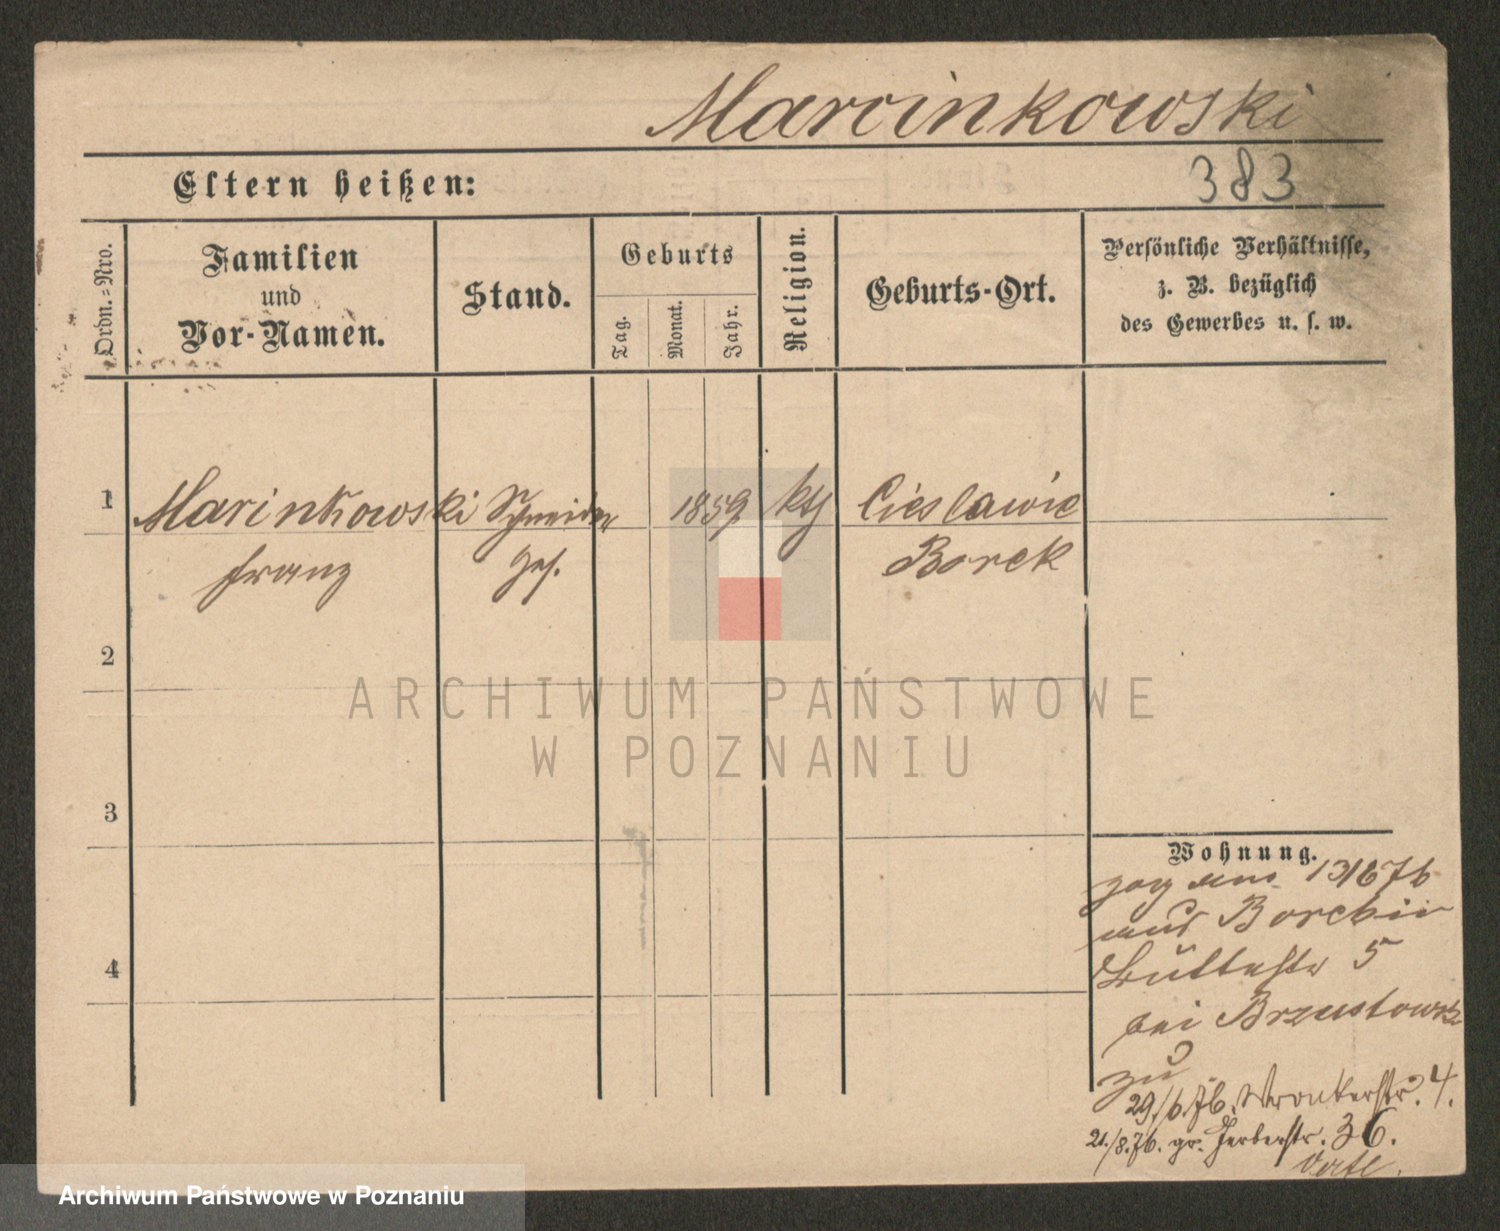 Marcinkowski
Eltern heißen:
383
Ordn.-Nro.
Familien
und
Vor-Namen.
Stand.
Geburts
Tag.
Monat.
Jahr.
Religion.
Geburts-Ort.
Persönliche Verhältnisse,
z. B. bezüglich
des Gewerbes u. s. w.
1
Marinkowski Schneider 1859 kth Cieslawie
Franz Ges. Borek
2
ARCHIWUM PAŃSTWOWE
W POZNANIU
3
Wohnung.
zog am 13/6 76
aus
Büttelstr 5
bei Brzustows
zu
29./6.76. Wronkerstr. 4.
21./8.76. gr. Gerberstr. 36.
4
Archiwum Państwowe w Poznaniu